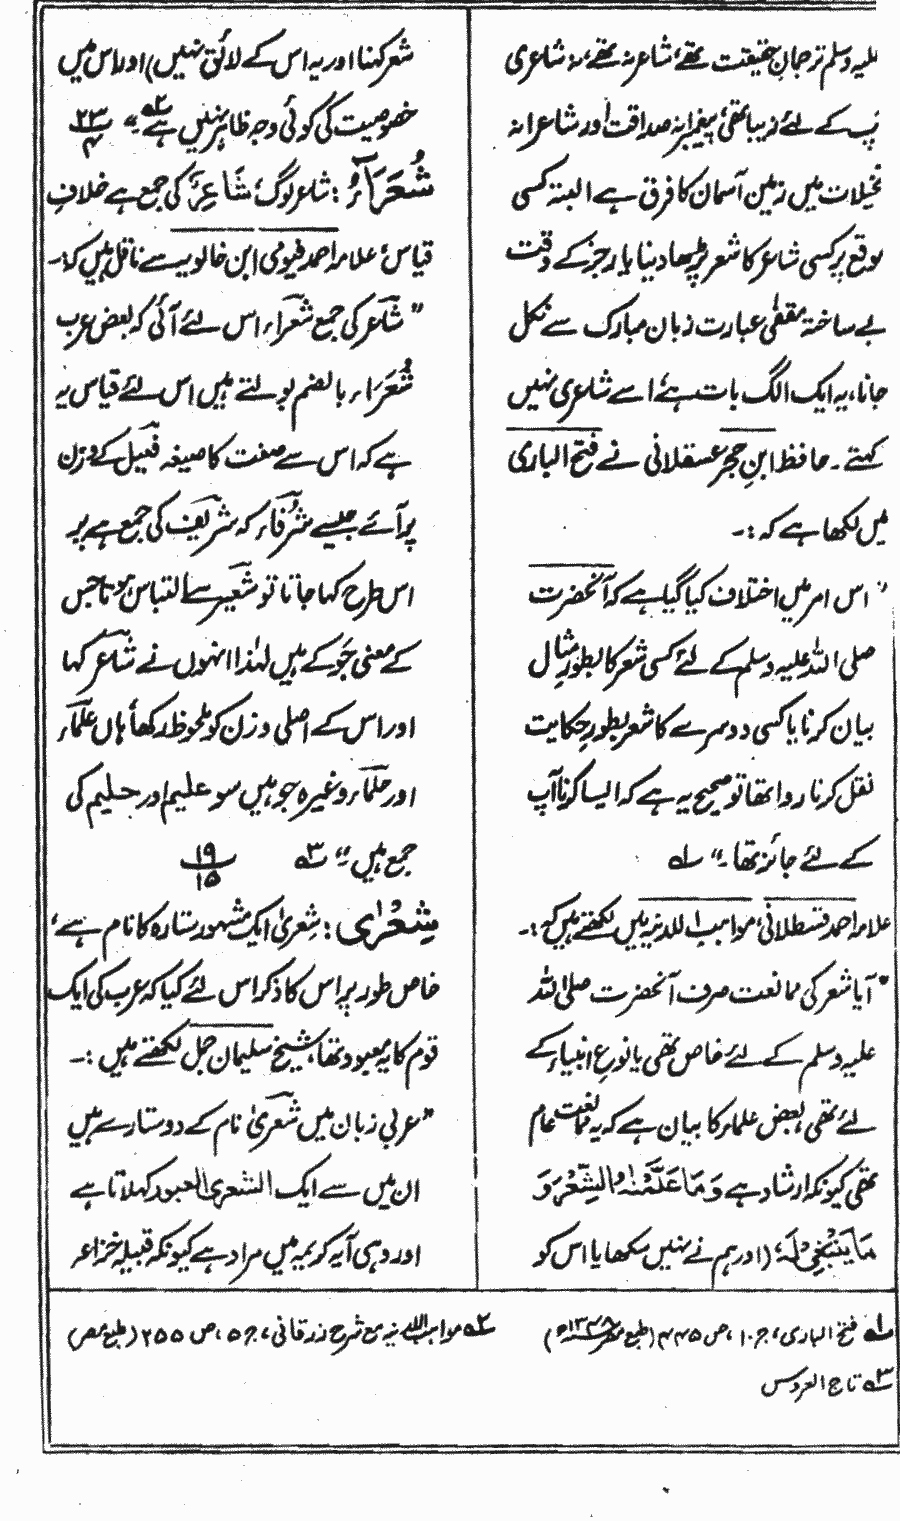 علیہ وسلم ترجمان حقیقت تھے، شاعر نہ تھے، نہ شاعری
پ کے لئے زیبا تھی، پیغمبرانہ صداقت اور شاعرانہ
تخیلات میں زمین آسمان کا فرق ہے البتہ کسی
موقع پر کسی شاعر کا شعر پڑھا دینا یا رجز کے وقت
بے ساختہ مقفّٰی عبارت زبان مبارک سے نکل
جانا، یہ ایک الگ بات ہے، اسے شاعری نہیں
کہتے۔ حافظ ابنِ حجر عسقلانی نے فتح الباری
میں لکھا ہے کہ :۔
" اس امر میں اختلاف کیا گیا ہے کہ آنحضرت
صلی اللہ علیہ وسلم کے لئے کسی شعر کا بطورِ مثال
بیان کرنا یا کسی دوسرے کا شعر بطورِ حکایت
نقل کرنا روا تھا تو صحیح یہ ہے کہ ایسا کرنا آپ
کے لئے جائز تھا۔" لہ
علامہ احمد قسطلانی، مواہب اللدنیہ میں لکھتے ہیں کہ :۔
" آیا شعر کی ممانعت صرف آنحضرت صلی اللہ
علیہ وسلم کے لئے خاص تھی یا نوعِ انبیاء کے
لئے تھی بعض علماء کا بیان ہے کہ یہ ممانعت عام
تھی کیونکہ ارشاد ہے وَمَا عَلَّمْنٰہُ الشِّعْرَ وَ
مَا یَنْبَغِیْ لَہٗ، (اور ہم نے نہیں سکھایا اس کو
شعر کہنا اور یہ اس کے لائق نہیں) اور اس میں
خصوصیت کی کوئی وجہ ظاہر نہیں ہے۔" ۲ہ ۲۳/۴
شُعَرَآءُ : شاعر لوگ، شَاعِرٌ کی جمع ہے خلافِ
قیاس، علامہ احمد فیومی ابن خالویہ سے ناقل ہیں کہ :۔
" شاعر کی جمع شعراء اس لئے آئی کہ بعض عرب
شُعَرَاء بالضم بولتے ہیں اس لئے قیاس یہ
ہے کہ اس سے صفت کا صیغہ فعیل کے وزن
پر آئے جیسے شُرَفَاء کہ شریف کی جمع ہے پر
اس طرح کہا جاتا تو شعیر سے التباس ہوتا جس
کے معنی جَو کے ہیں لہٰذا انہوں نے شاعر کہا
اور اس کے اصلی وزن کو ملحوظ رکھا، ہاں علماء
اور حلماء وغیرہ جو ہیں سو علیم اور حلیم کی
جمع ہیں۔" ۳ہ ۱۹/۱۵
شِعْرٰی : شِعرٰی ایک مشہور ستارہ کا نام ہے،
خاص طور پر اس کا ذکر اس لئے کیا کہ عرب کی ایک
قوم کا یہ معبود تھا، شیخ سلیمان جمل لکھتے ہیں :۔
" عربی زبان میں شعرٰی نام کے دو ستارے ہیں
ان میں سے ایک الشعری العبور کہلاتا ہے
اور وہی آیہ کریمہ میں مراد ہے کیونکہ قبیلہ خزاعہ
لہ فتح الباری، ج ۱۰، ص ۴۴۵ (طبع مصر ۱۳۴۸ھ)
۲ہ مواہب اللدنیہ مع شرح زرقانی، ج ۵، ص ۲۵۵ (طبع مصر)
۳ہ تاج العروس